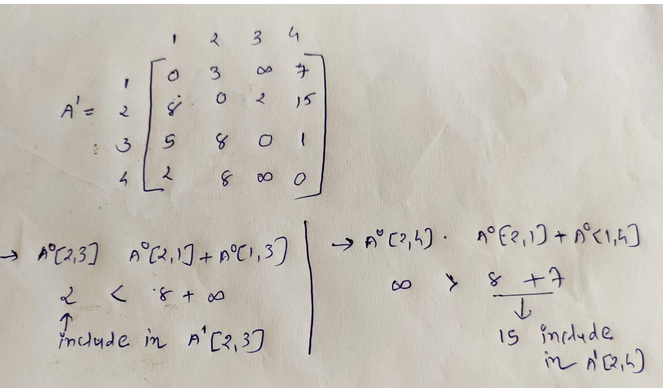 1 2 3 4
A¹ = 
1 0 3 ∞ 7
2 8 0 2 15
3 5 8 0 1
4 2 8 ∞ 0
→ A⁰[2,3] A⁰[2,1] + A⁰[1,3]
2 < 8 + ∞
↑
include in A¹[2,3]
→ A⁰[2,4] · A⁰[2,1] + A⁰[1,4]
∞ > 8 + 7
↓
15 include
in A¹[2,4]